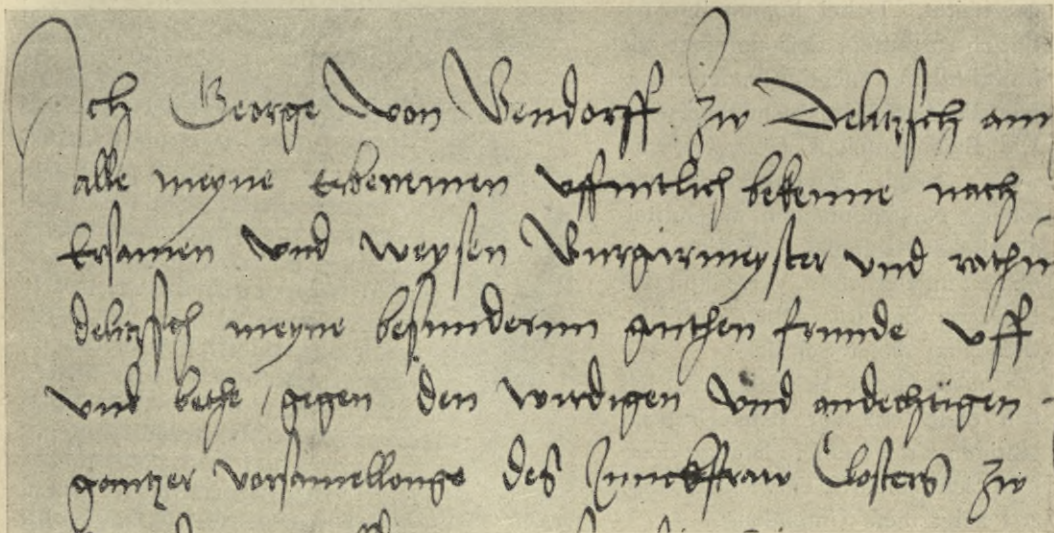 Ich George von Bendorff Zw Delitzsch am
alle meyne erbenemen uffintlich bekenne nach
Ersamen und weysen Burgirmeyster und rath
delitzsch meyne besundernn guthen frunde uff
und bethe / gegen den wirdigen und andechtigen
gantzer vorsamellonge des Junckfraw Closters zw